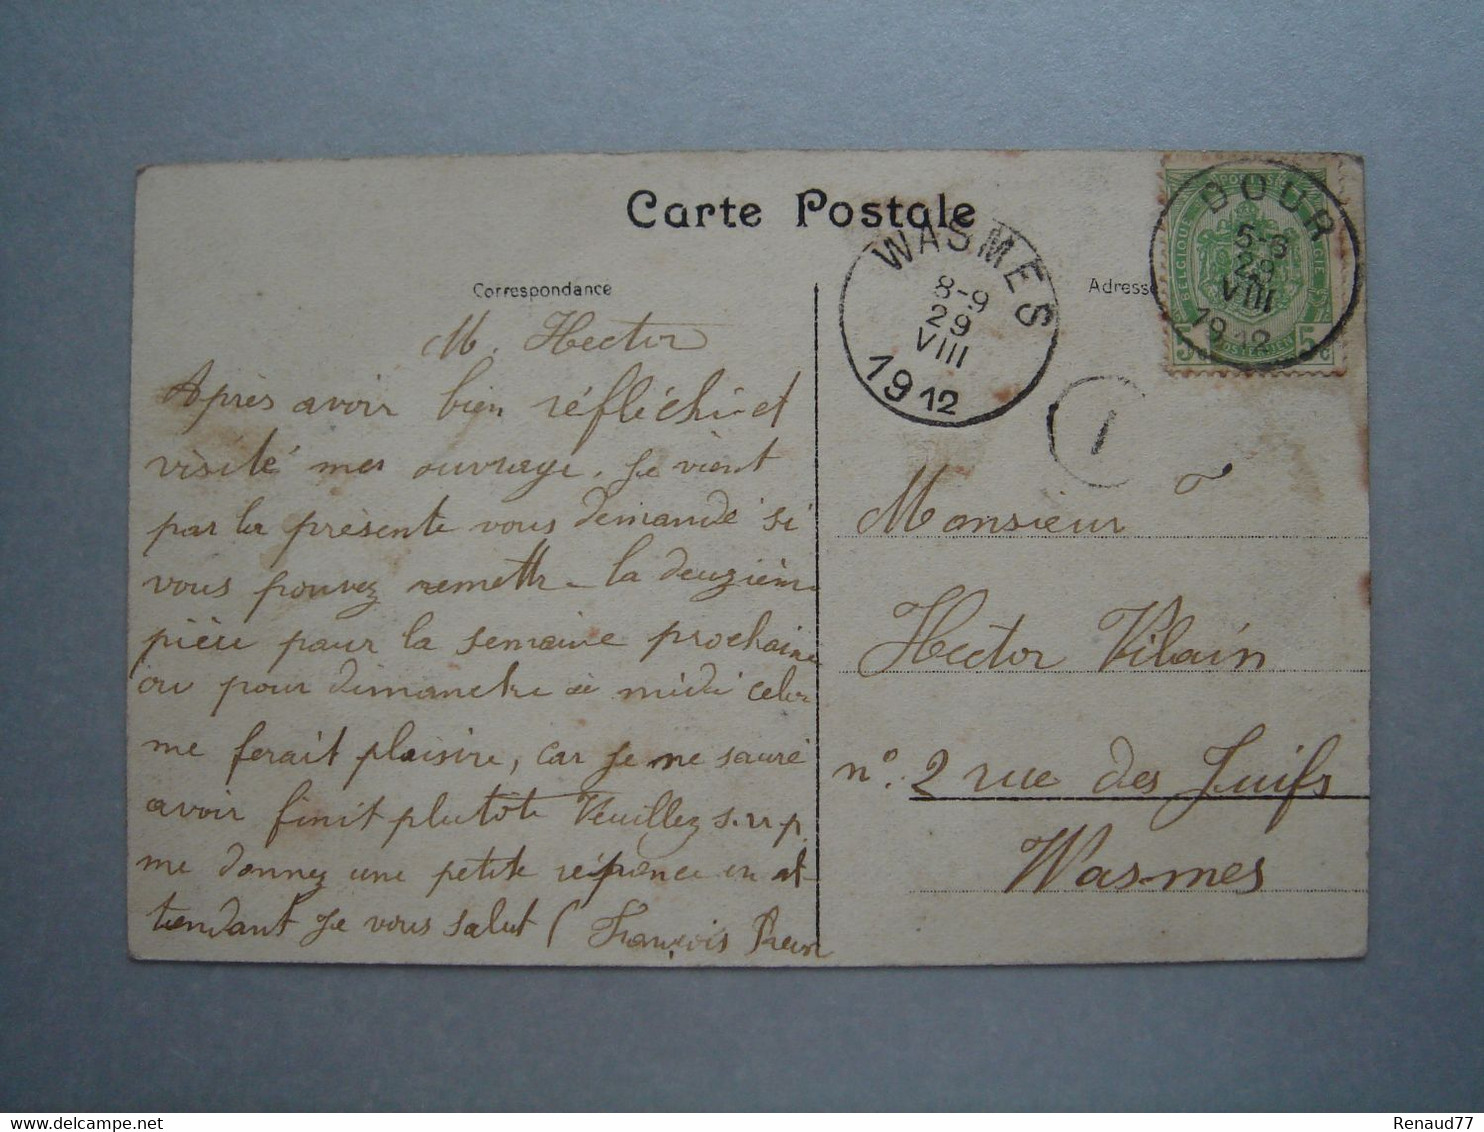 Carte Postale
Correspondance
Adresse
WASMES
8-9
29
VIII
1912
DOUR
29
VIII
1912
BELGIQUE
5c 5c
1
M. Hector
Après avoir bien réfléchi et
visité mes ouvrage. Je vient
par la présente vous demandé si
vous pouvez remettre la deuzième
pièce pour la semaine prochaine
ou pour dimanche à midi cela
me ferait plaisire, car je ne sauré
avoir finit plutôt Veuillez s.v.p.
me donnez une petite réponce en at-
tendant je vous salut (François
Monsieur
Hector Vilain
n° 2 rue des Juifs
Wasmes
Renaud77